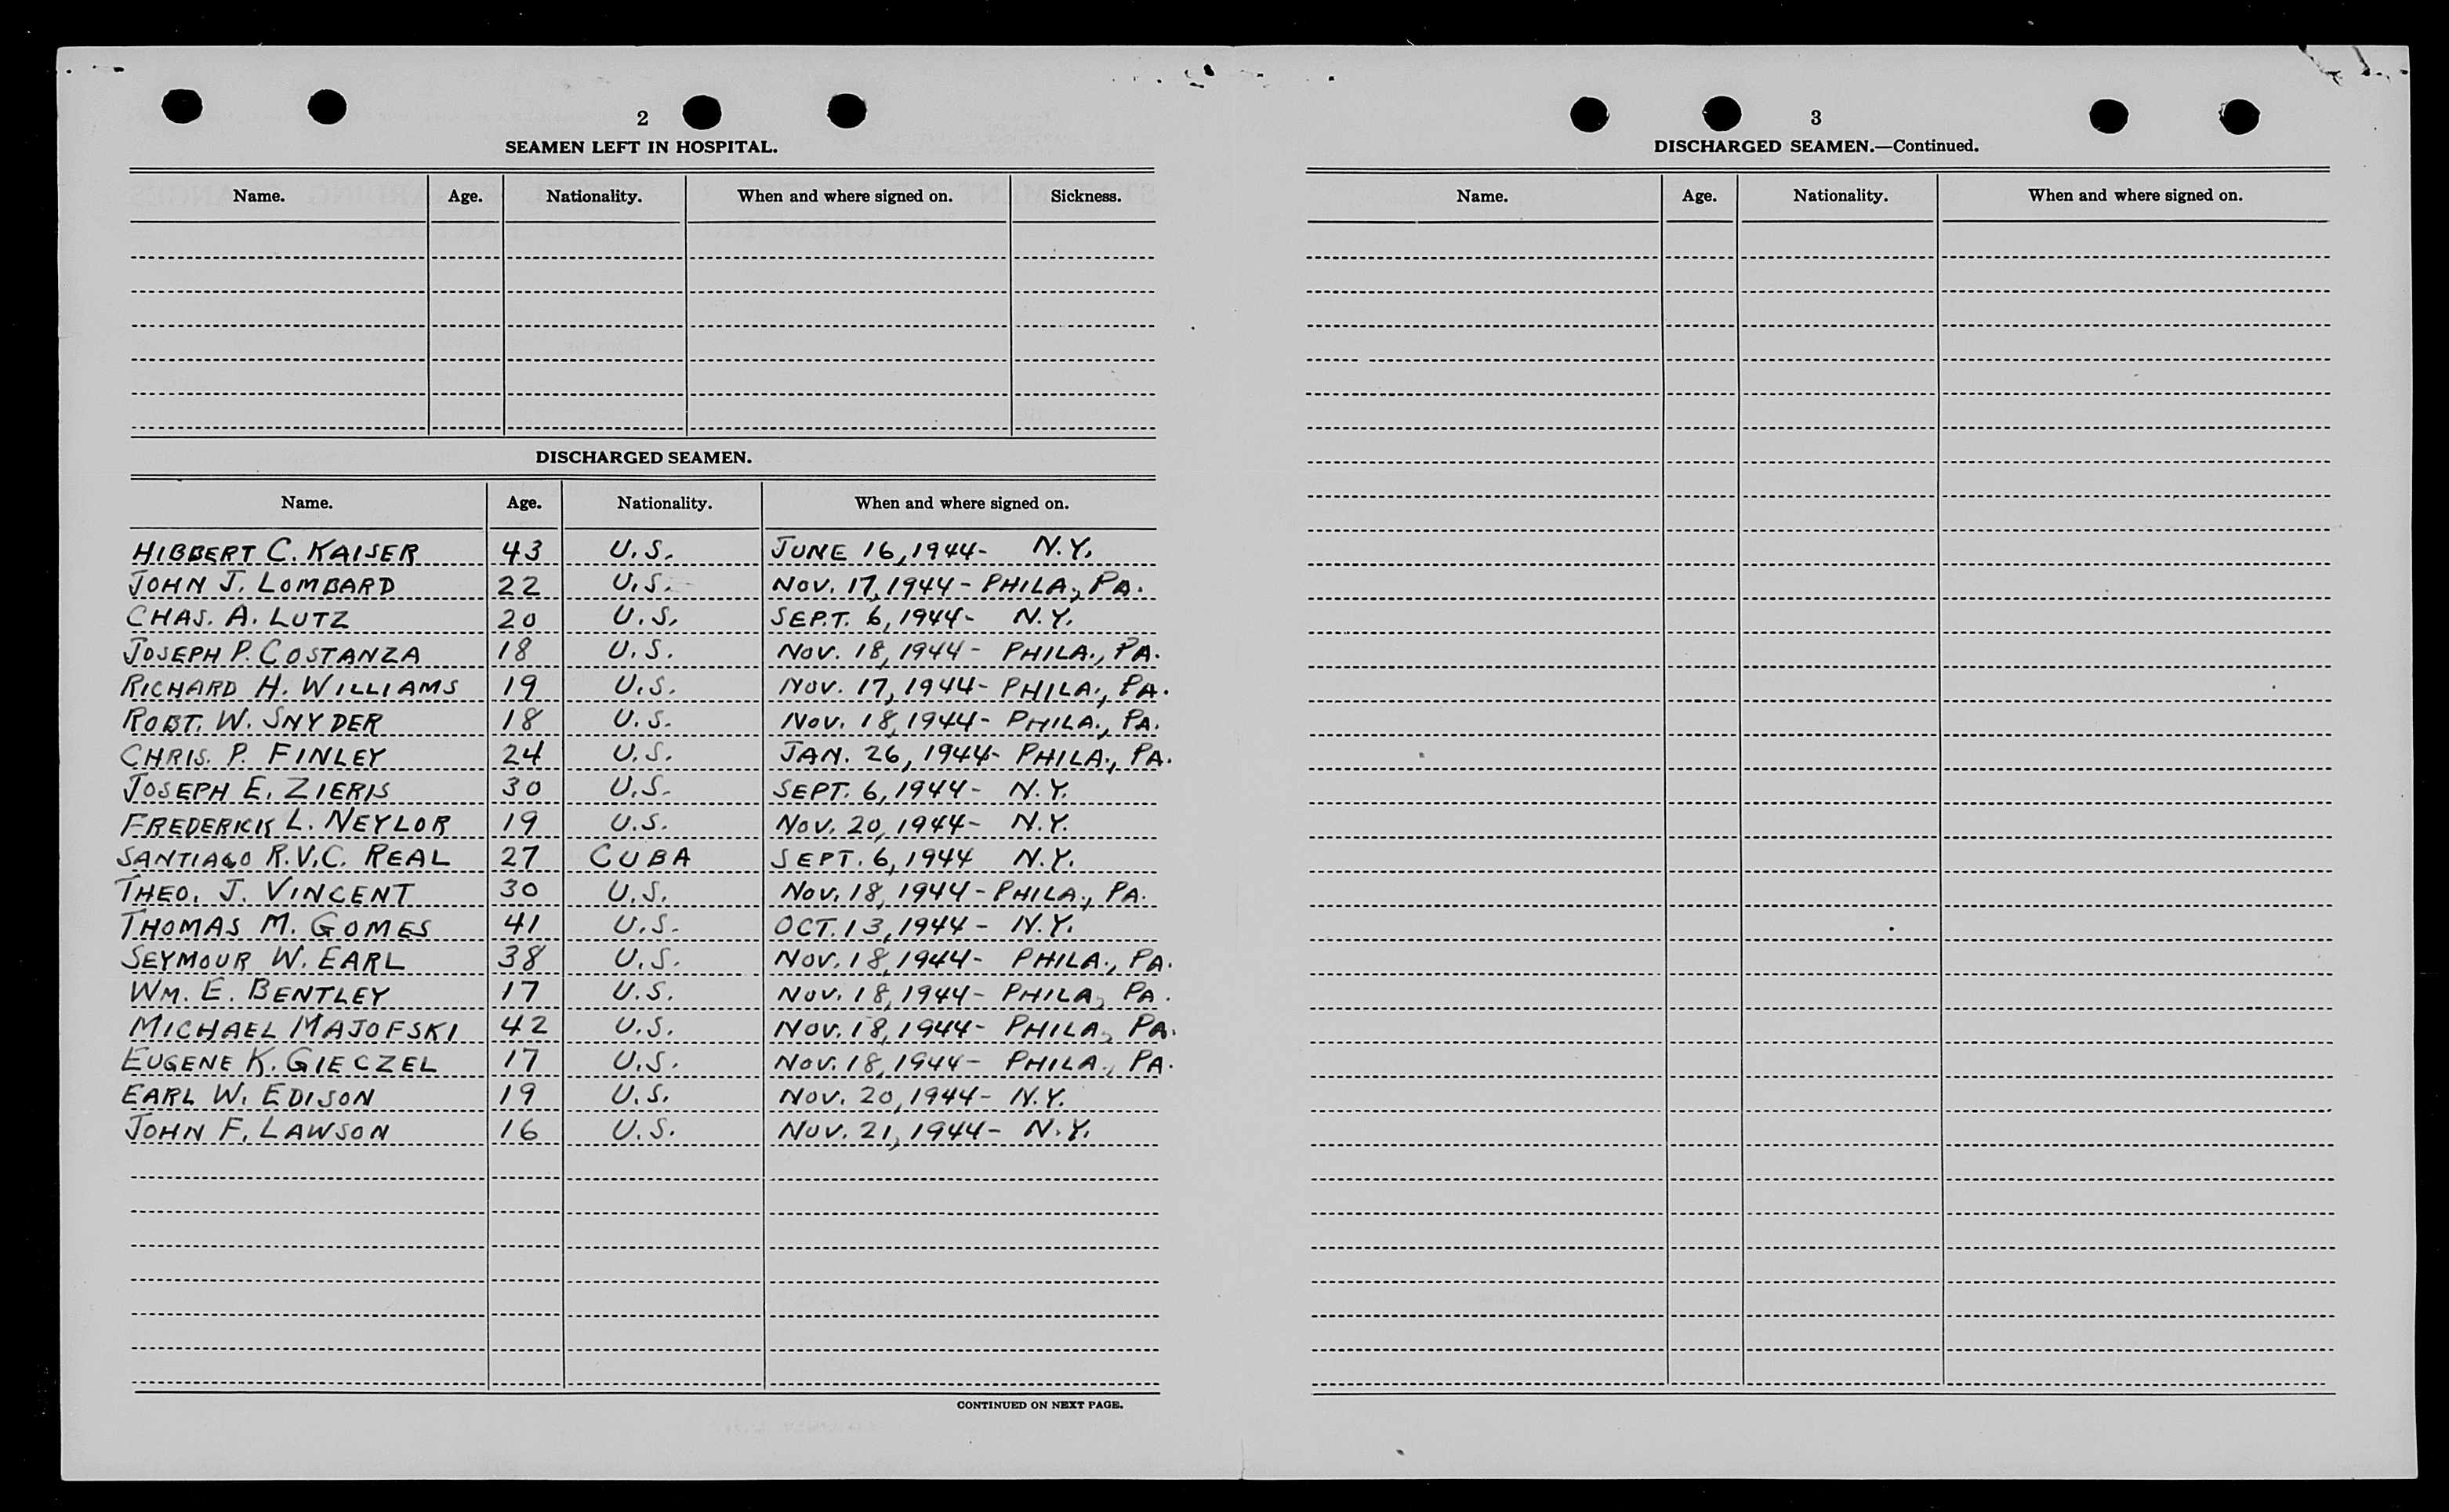 2
SEAMEN LEFT IN HOSPITAL.
Name. Age. Nationality. When and where signed on. Sickness.
DISCHARGED SEAMEN.
Name. Age. Nationality. When and where signed on.
HIBBERT C. KAISER 43 U.S. JUNE 16, 1944- N.Y.
JOHN J. LOMBARD 22 U.S. NOV. 17, 1944- PHILA., PA.
CHAS. A. LUTZ 20 U.S. SEPT. 6, 1944- N.Y.
JOSEPH P. COSTANZA 18 U.S. NOV. 18, 1944- PHILA., PA.
RICHARD H. WILLIAMS 19 U.S. NOV. 17, 1944- PHILA., PA.
ROBT. W. SNYDER 18 U.S. NOV. 18, 1944- PHILA., PA.
CHRIS. P. FINLEY 24 U.S. JAN. 26, 1944- PHILA., PA.
JOSEPH E. ZIERIS 30 U.S. SEPT. 6, 1944- N.Y.
FREDERICK L. NEYLOR 19 U.S. NOV. 20, 1944- N.Y.
SANTIAGO R.V.C. REAL 27 CUBA SEPT. 6, 1944 N.Y.
THEO. J. VINCENT 30 U.S. NOV. 18, 1944- PHILA., PA.
THOMAS M. GOMES 41 U.S. OCT. 13, 1944- N.Y.
SEYMOUR W. EARL 38 U.S. NOV. 18, 1944- PHILA., PA.
WM. E. BENTLEY 17 U.S. NOV. 18, 1944- PHILA, PA.
MICHAEL MAJOFSKI 42 U.S. NOV. 18, 1944- PHILA, PA.
EUGENE K. GIECZEL 17 U.S. NOV. 18, 1944- PHILA., PA.
EARL W. EDISON 19 U.S. NOV. 20, 1944- N.Y.
JOHN F. LAWSON 16 U.S. NOV. 21, 1944- N.Y.
CONTINUED ON NEXT PAGE.
3
DISCHARGED SEAMEN.—Continued.
Name. Age. Nationality. When and where signed on.